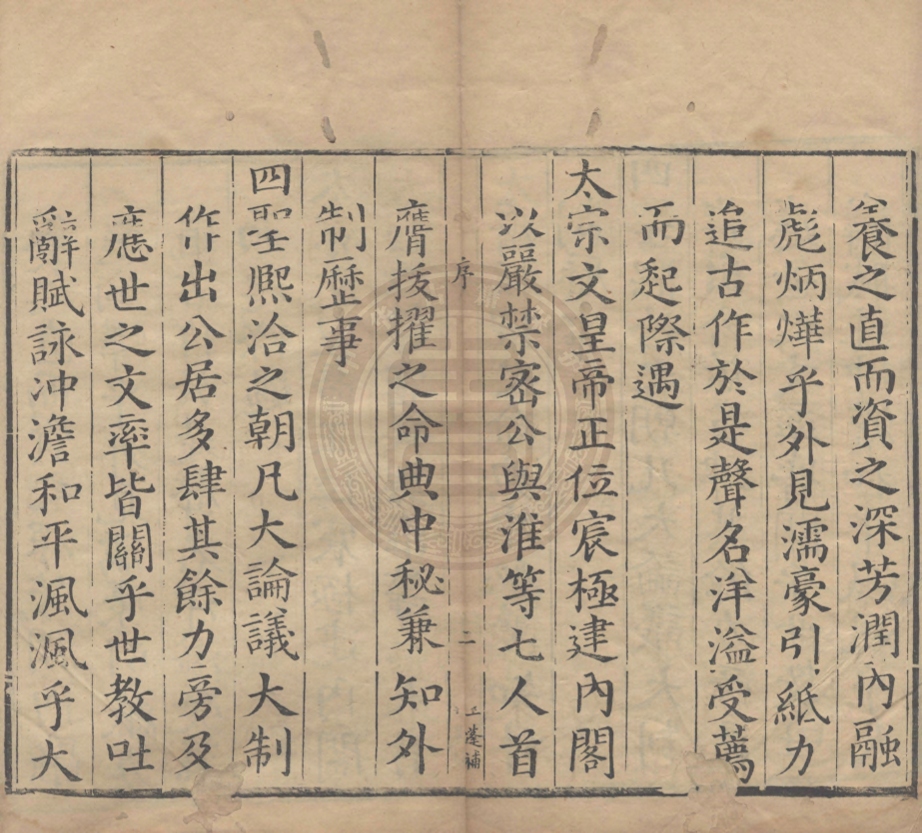 養之直而資之深芳潤內融
彪炳燁乎外見濡豪引紙力
追古作於是聲名洋溢受薦
而起際遇
太宗文皇帝正位宸極建內閣
以嚴禁密公與淮等七人首
序
二
膺拔擢之命典中秘兼知外
制歷事
四聖熈洽之朝凡大論議大制
作出公居多肆其餘力旁及
應世之文率皆關乎世教吐
辭賦詠冲澹和平渢渢乎大